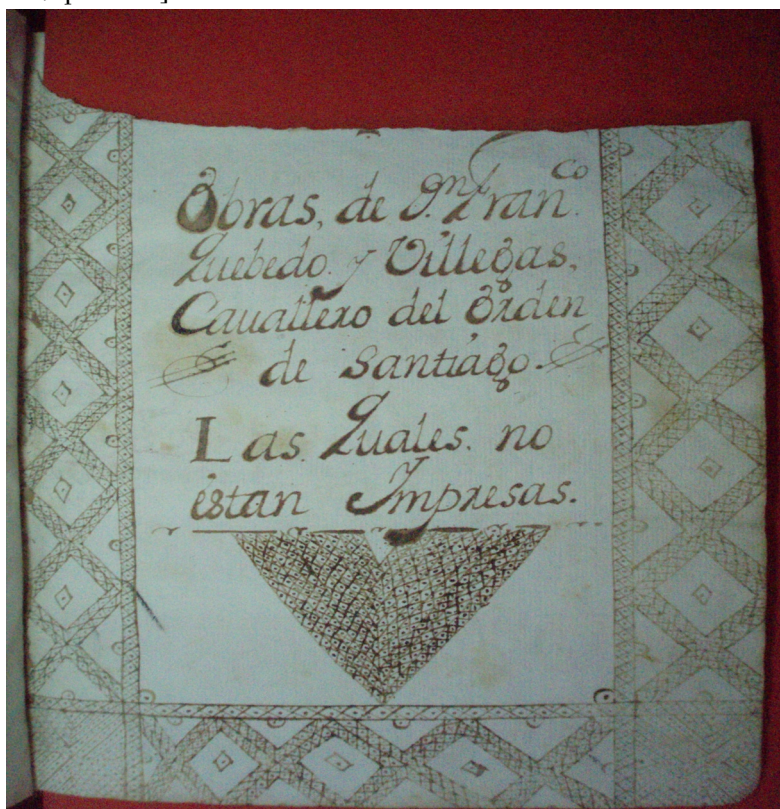 Obras, de D.n Fran.co
Quebedo. y Villegas.
Cauallero del Orden
de Santiago.
Las Quales. no
estan Impresas.